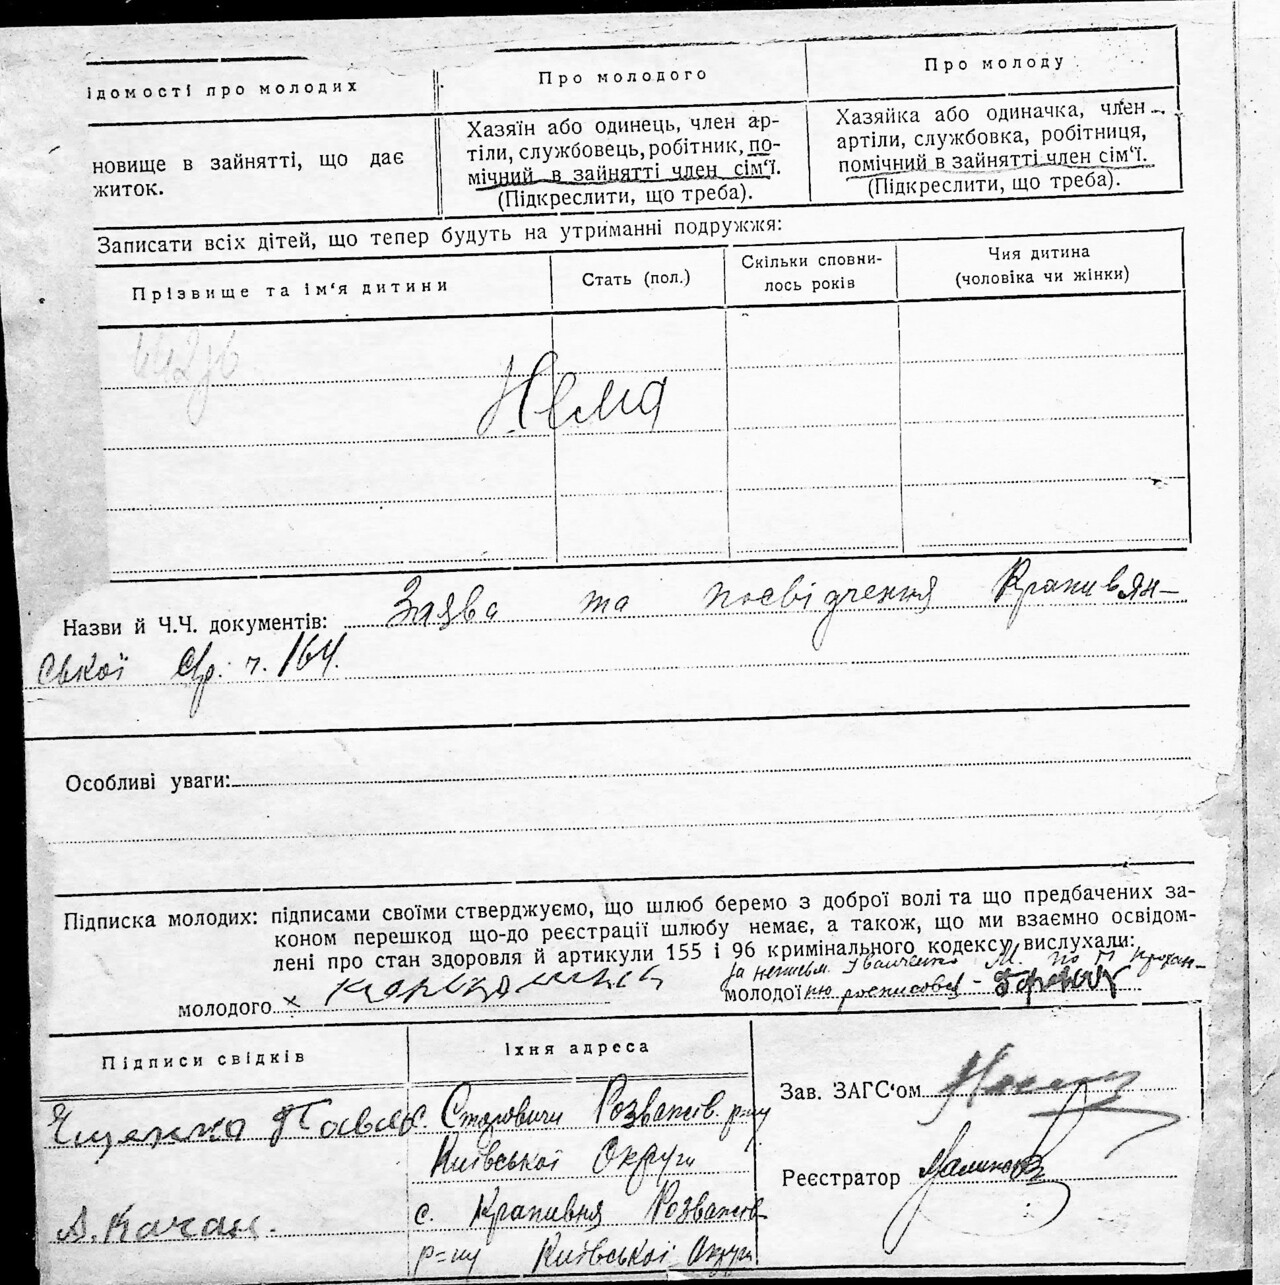 ідомості про молодих
Про молодого
Про молоду
новище в зайнятті, що дає
житок.
Хазяїн або одинець, член ар-
тіли, службовець, робітник, по-
мічний в зайнятті член сім'ї.
(Підкреслити, що треба).
Хазяйка або одиначка, член
артіли, службовка, робітниця,
помічний в зайнятті член сім'ї.
(Підкреслити, що треба).
Записати всіх дітей, що тепер будуть на утриманні подружжя:
Прізвище та ім'я дитини
Стать (пол.)
Скільки сповни-
лось років
Чия дитина
(чоловіка чи жінки)
Нема
Назви й Ч.Ч. документів: Заява та посвідчення Крапивян-
ської с/р. ч. 164.
Особливі уваги:
Підписка молодих: підписами своїми стверджуємо, що шлюб беремо з доброї волі та що предбачених за-
коном перешкод що-до реєстрації шлюбу немає, а також, що ми взаємно освідом-
лені про стан здоровля й артикули 155 і 96 кримінального кодексу вислухали:
за неписьм. Іванченко М. по її прохан-
молодого х
молодої ню росписовся -
Підписи свідків
Їхня адреса
Ященко Павло
с. Старовичи Розважів. р-ну
Київської Округи
А. Качан.
с. Крапивня Розважів
р-ну Київської Округи
Зав. ЗАГС'ом
Реєстратор